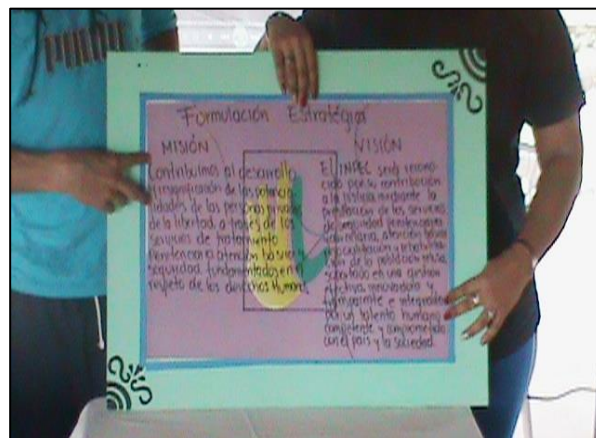 Formulación Estratégica
MISIÓN
Contribuimos al desarrollo
y resignificación de las potencia
lidades de las personas privadas
de la libertad, a través de los
servicios de tratamiento
Penitenciario atención básica y
seguridad, fundamentados en el
respeto de los derechos Humanos
VISIÓN
El INPEC será recono-
cido por su contribución
a la justicia mediante la
prestación de los servicios
de seguridad penitenciaria
atención básica
resocialización y rehabilita-
ción de la población reclusa,
soportado en una gestión
efectiva, innovadora y
transparente e integrada
por un talento humano
competente y comprometido
con el país y la sociedad.